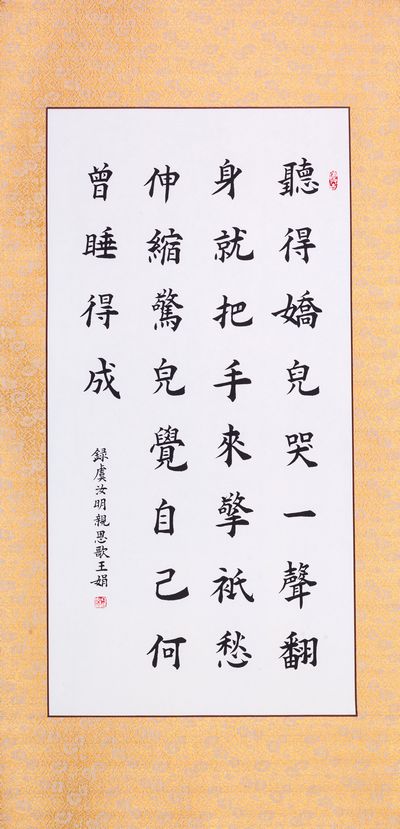 聽得嬌兒哭一聲翻
身就把手來擎祇愁
伸縮驚兒覺自己何
曾睡得成
錄虞汝明親恩歌王娟